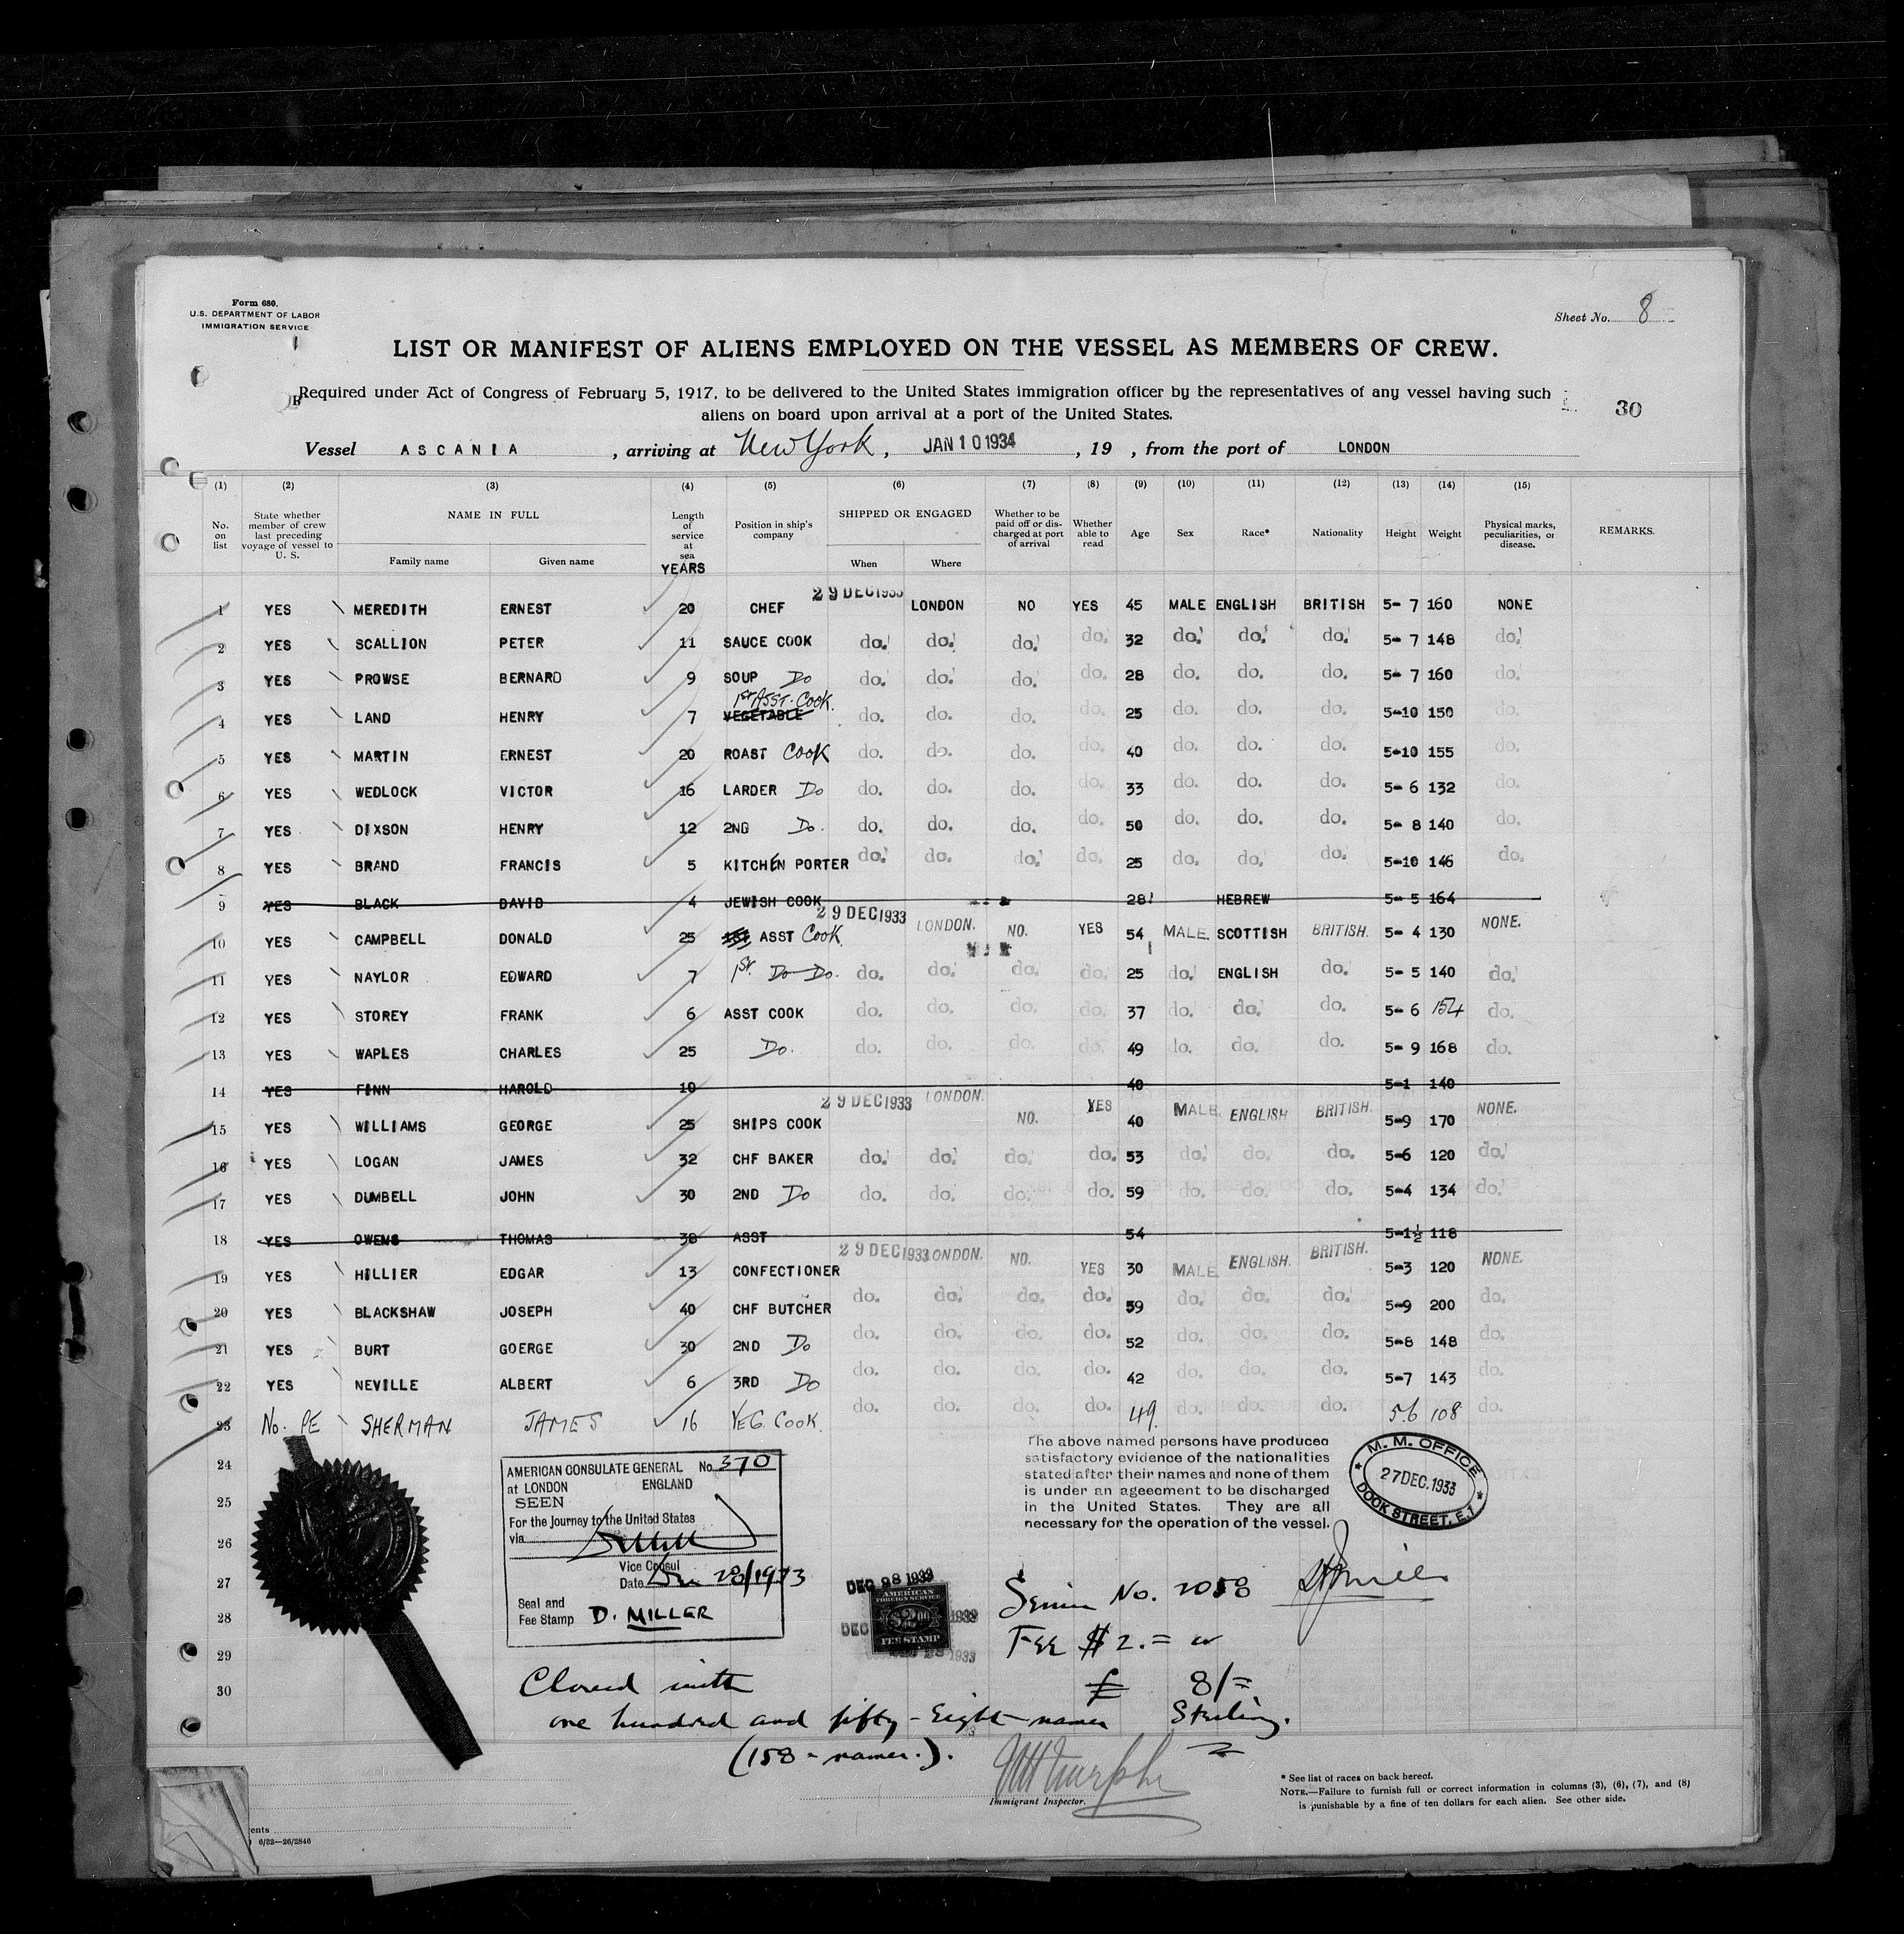 Form 680.
U.S. DEPARTMENT OF LABOR
IMMIGRATION SERVICE
Sheet No. 8
LIST OR MANIFEST OF ALIENS EMPLOYED ON THE VESSEL AS MEMBERS OF CREW.
Required under Act of Congress of February 5, 1917, to be delivered to the United States immigration officer by the representatives of any vessel having such
aliens on board upon arrival at a port of the United States.
30
Vessel ASCANIA, arriving at New York, JAN 10 1934, 19 , from the port of LONDON
(1) (2) (3) (4) (5) (6) (7) (8) (9) (10) (11) (12) (13) (14) (15)
No. on list State whether member of crew last preceding voyage of vessel to U. S. NAME IN FULL Family name Given name Length of service at sea YEARS Position in ship's company SHIPPED OR ENGAGED When Where Whether to be paid off or discharged at port of arrival Whether able to read Age Sex Race* Nationality Height Weight Physical marks, peculiarities, or disease. REMARKS.
1 YES MEREDITH ERNEST 20 CHEF 29 DEC 1933 LONDON NO YES 45 MALE ENGLISH BRITISH 5- 7 160 NONE
2 YES SCALLION PETER 11 SAUCE COOK do. do. do. do. 32 do. do. do. 5- 7 148 do.
3 YES PROWSE BERNARD 9 SOUP Do do. do. do. do. 28 do. do. do. 5- 7 160 do.
4 YES LAND HENRY 7 VEGETABLE 1st ASST. COOK. do. do. do. do. 25 do. do. do. 5-10 150 do.
5 YES MARTIN ERNEST 20 ROAST COOK do. do. do. do. 40 do. do. do. 5-10 155 do.
6 YES WEDLOCK VICTOR 16 LARDER Do do. do. do. do. 33 do. do. do. 5- 6 132 do.
7 YES DIXSON HENRY 12 2ND Do. do. do. do. do. 50 do. do. do. 5- 8 140 do.
8 YES BRAND FRANCIS 5 KITCHEN PORTER do. do. do. do. 25 do. do. do. 5-10 146 do.
9 YES BLACK DAVID 4 JEWISH COOK 28 HEBREW 5- 5 164
10 YES CAMPBELL DONALD 25 1ST ASST COOK. 29 DEC 1933 LONDON. NO. YES 54 MALE. SCOTTISH BRITISH. 5- 4 130 NONE.
11 YES NAYLOR EDWARD 7 1st. Do Do. do. do. do. do. 25 do. ENGLISH do. 5- 5 140 do.
12 YES STOREY FRANK 6 ASST COOK do. do. do. do. 37 do. do. do. 5- 6 154 do.
13 YES WAPLES CHARLES 25 Do. do. do. do. do. 49 do. do. do. 5- 9 168 do.
14 YES FINN HAROLD 10 40 5-1 140
15 YES WILLIAMS GEORGE 25 SHIPS COOK 29 DEC 1933 LONDON. NO. YES 40 MALE ENGLISH BRITISH. 5-9 170 NONE.
16 YES LOGAN JAMES 32 CHF BAKER do. do. do. do. 53 do. do. do. 5-6 120 do.
17 YES DUMBELL JOHN 30 2ND Do do. do. do. do. 59 do. do. do. 5-4 134 do.
18 YES OWENS THOMAS 38 ASST 54 5-1½ 118
19 YES HILLIER EDGAR 13 CONFECTIONER 29 DEC 1933 LONDON. NO. YES 30 MALE ENGLISH. BRITISH. 5-3 120 NONE.
20 YES BLACKSHAW JOSEPH 40 CHF BUTCHER do. do. do. do. 59 do. do. do. 5-9 200 do.
21 YES BURT GOERGE 30 2ND Do do. do. do. do. 52 do. do. do. 5-8 148 do.
22 YES NEVILLE ALBERT 6 3RD Do do. do. do. do. 42 do. do. do. 5-7 143 do.
23 No. PE SHERMAN JAMES 16 VEG. COOK. do. do. do. do. 49. do. do. do. 5.6 108 do.
24
25
26
27
28
29
30
AMERICAN CONSULATE GENERAL No. 370
at LONDON ENGLAND
SEEN
For the journey to the United States
via
Vice Consul
Date Dec 28/1933
Seal and
Fee Stamp D. MILLER
DEC 28 1933
AMERICAN
FOREIGN SERVICE
$2.00
FEE STAMP
The above named persons have produced
satisfactory evidence of the nationalities
stated after their names and none of them
is under an ageeement to be discharged
in the United States. They are all
necessary for the operation of the vessel.
M. M. OFFICE
27 DEC. 1933
DOCK STREET, E.1
No. 2058
Fee $2.=
£ 8/=
Sterling.
Closed with
one hundred and fifty-Eight names
(158 - names.).
Immigrant Inspector.
* See list of races on back hereof.
NOTE.—Failure to furnish full or correct information in columns (3), (6), (7), and (8)
is punishable by a fine of ten dollars for each alien. See other side.
ents
6/32—26/2846